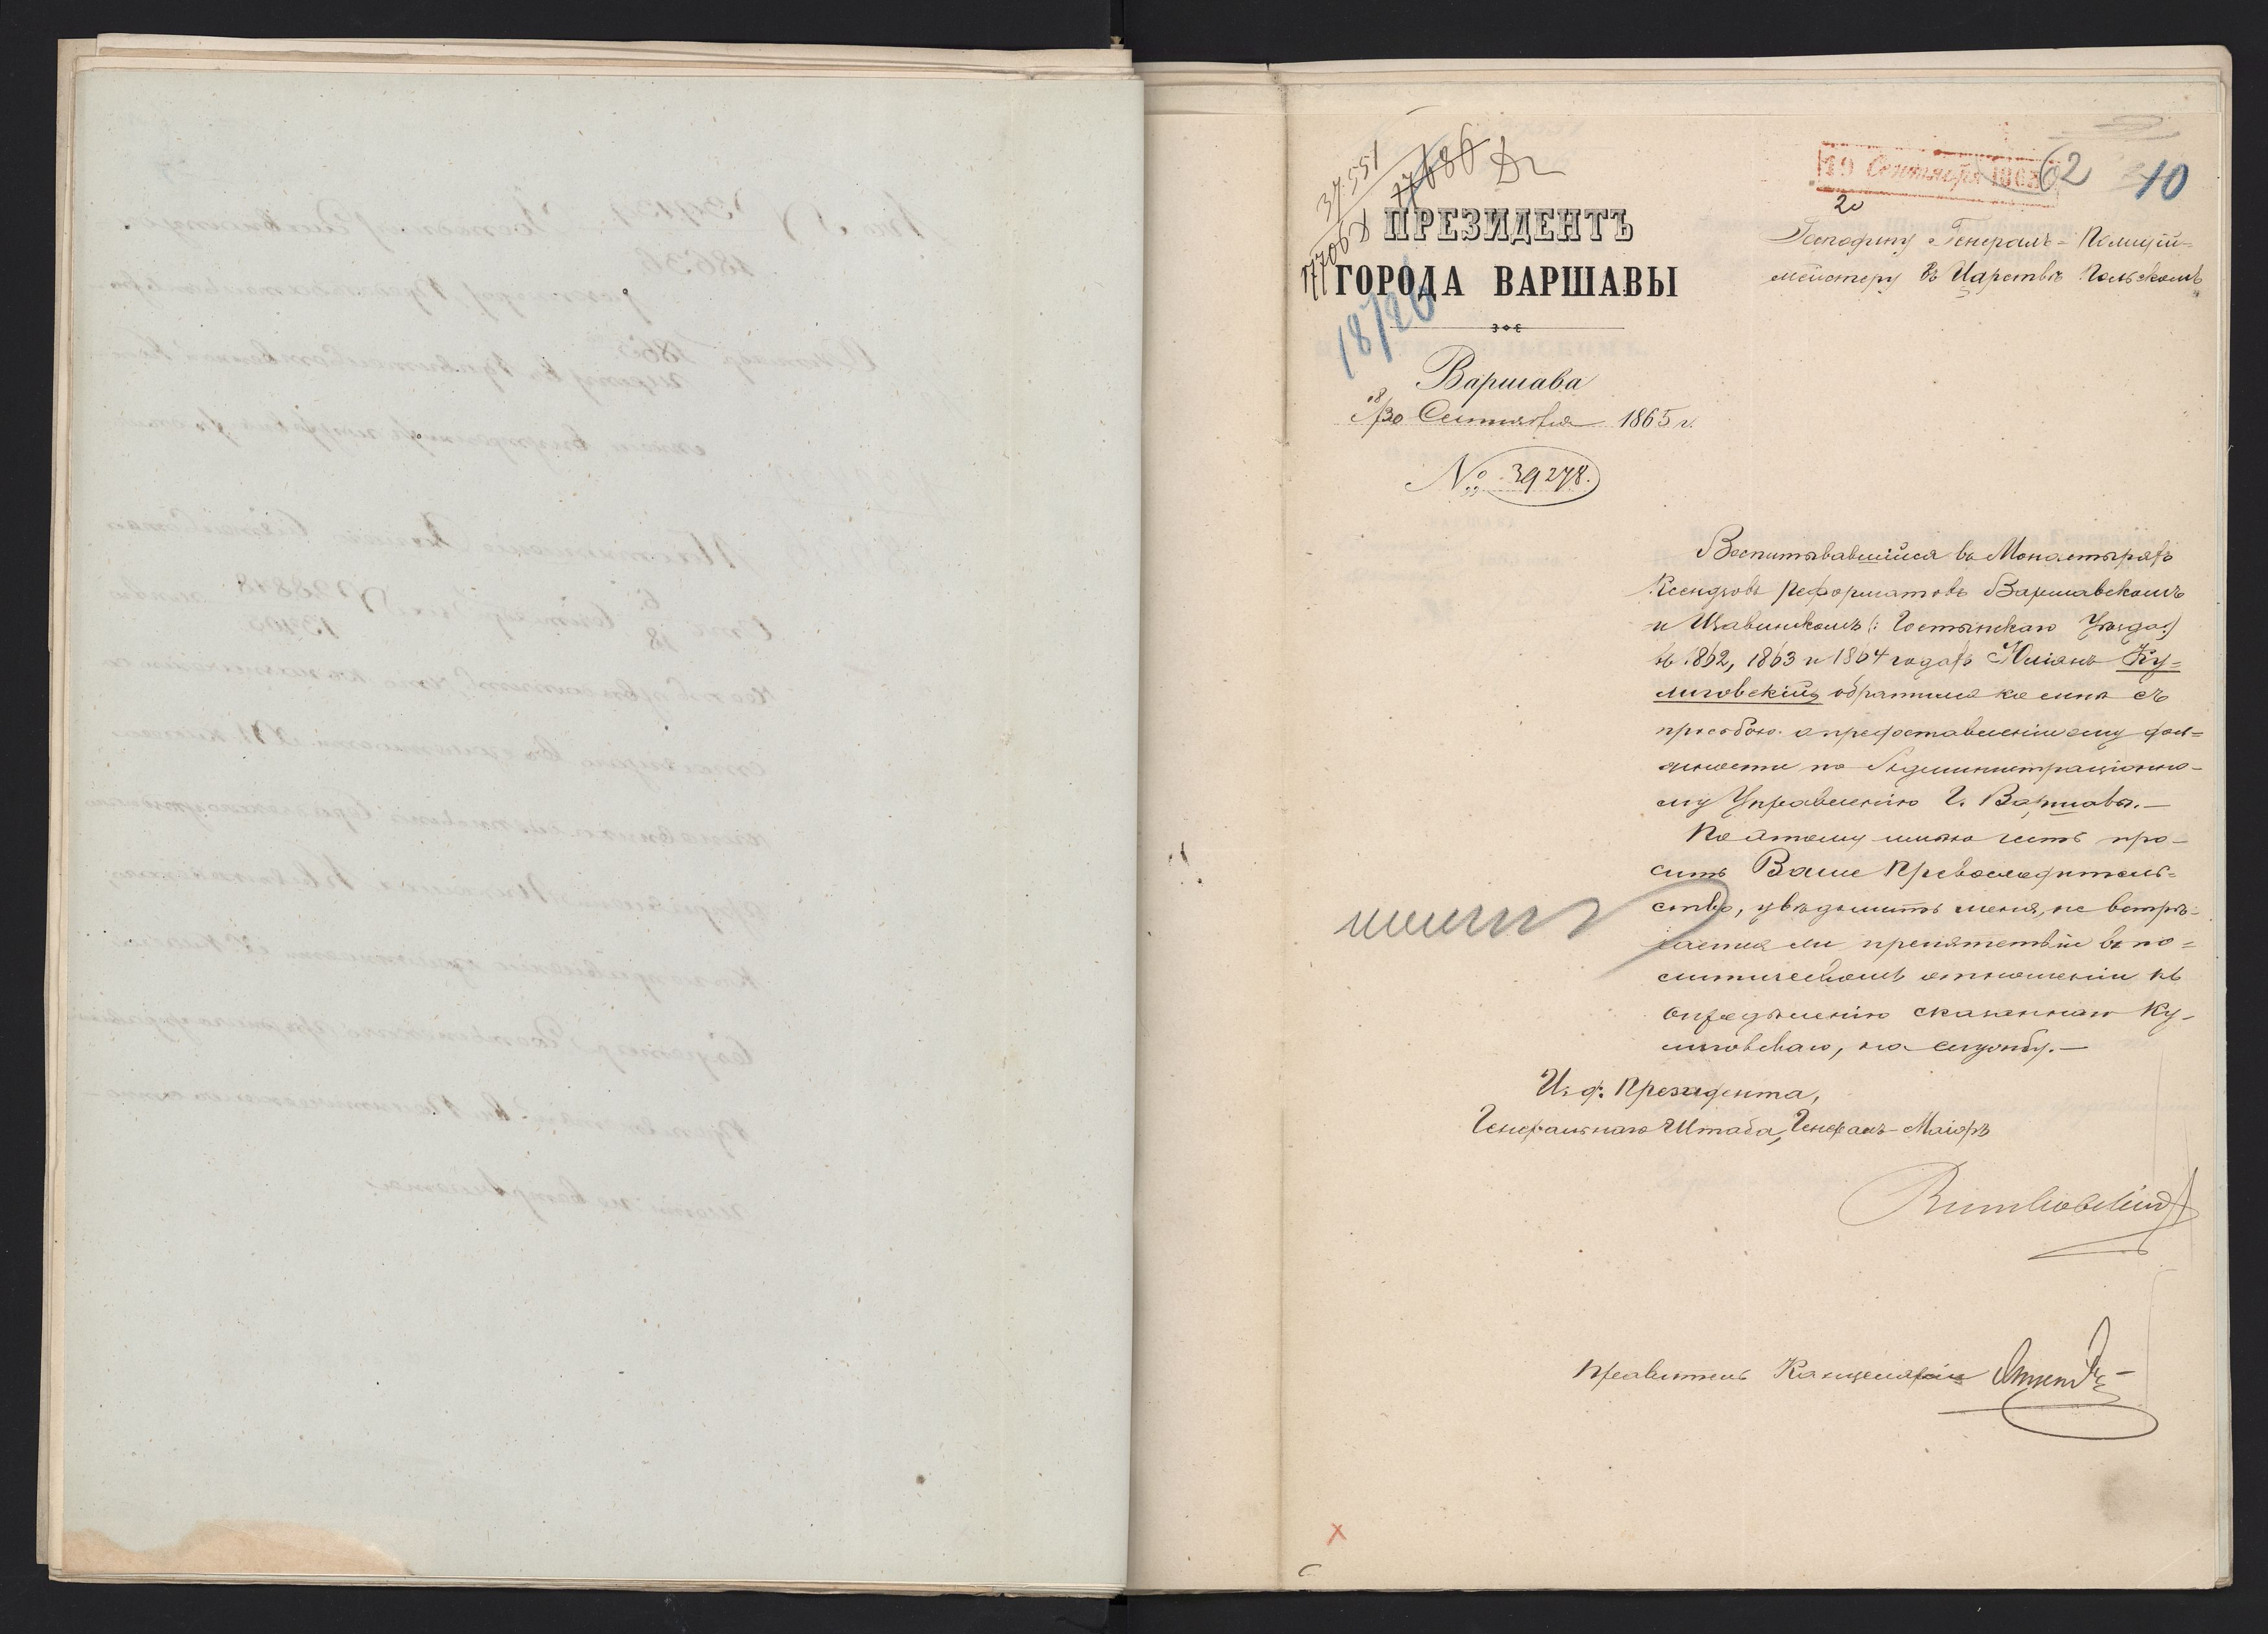 37551
17686
17706
19 Сентября 1865
20
62
10
ПРЕЗИДЕНТЪ
ГОРОДА ВАРШАВЫ
18720
Варшава
18/30 Сентября 1865 г.
№ 39278.
Господину Генералъ-Полицій=
мейстеру въ Царствѣ Польскомъ
Воспитывавшійся въ Монастыряхъ
Ксендзовъ Реформатовъ Варшавскомъ
и Щавинскомъ (: Гостынскаго Уѣзда :)
въ 1862, 1863 и 1864 годахъ Юліанъ Ку=
лиговскій, обратился ко мнѣ съ
просьбою о предоставленіи ему дол=
жности по Администраціонно-
му Управленію Г. Варшавы.—
По этому имѣю честь про-
сить Ваше Превосходитель=
ство, увѣдомить меня, не встрѣ-
чается ли препятствій въ по=
литическомъ отношеніи къ
опредѣленію сказаннаго Ку-
лиговскаго, на службу.—
И. д. Президента,
Генеральнаго Штаба, Генералъ-Маіоръ
Витковскій
Правитель Канцеляріи